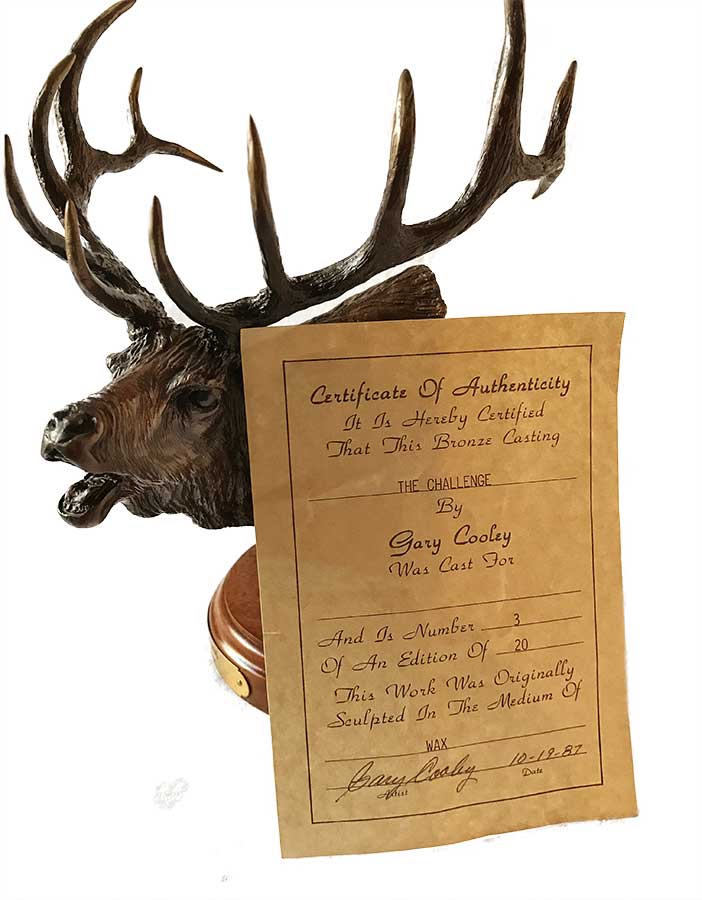 Certificate Of Authenticity
It Is Hereby Certified
That This Bronze Casting
THE CHALLENGE
By
Gary Cooley
Was Cast For
And Is Number 3
Of An Edition Of 20
This Work Was Originally
Sculpted In The Medium Of
WAX
Gary Cooley 10-19-87
Artist Date